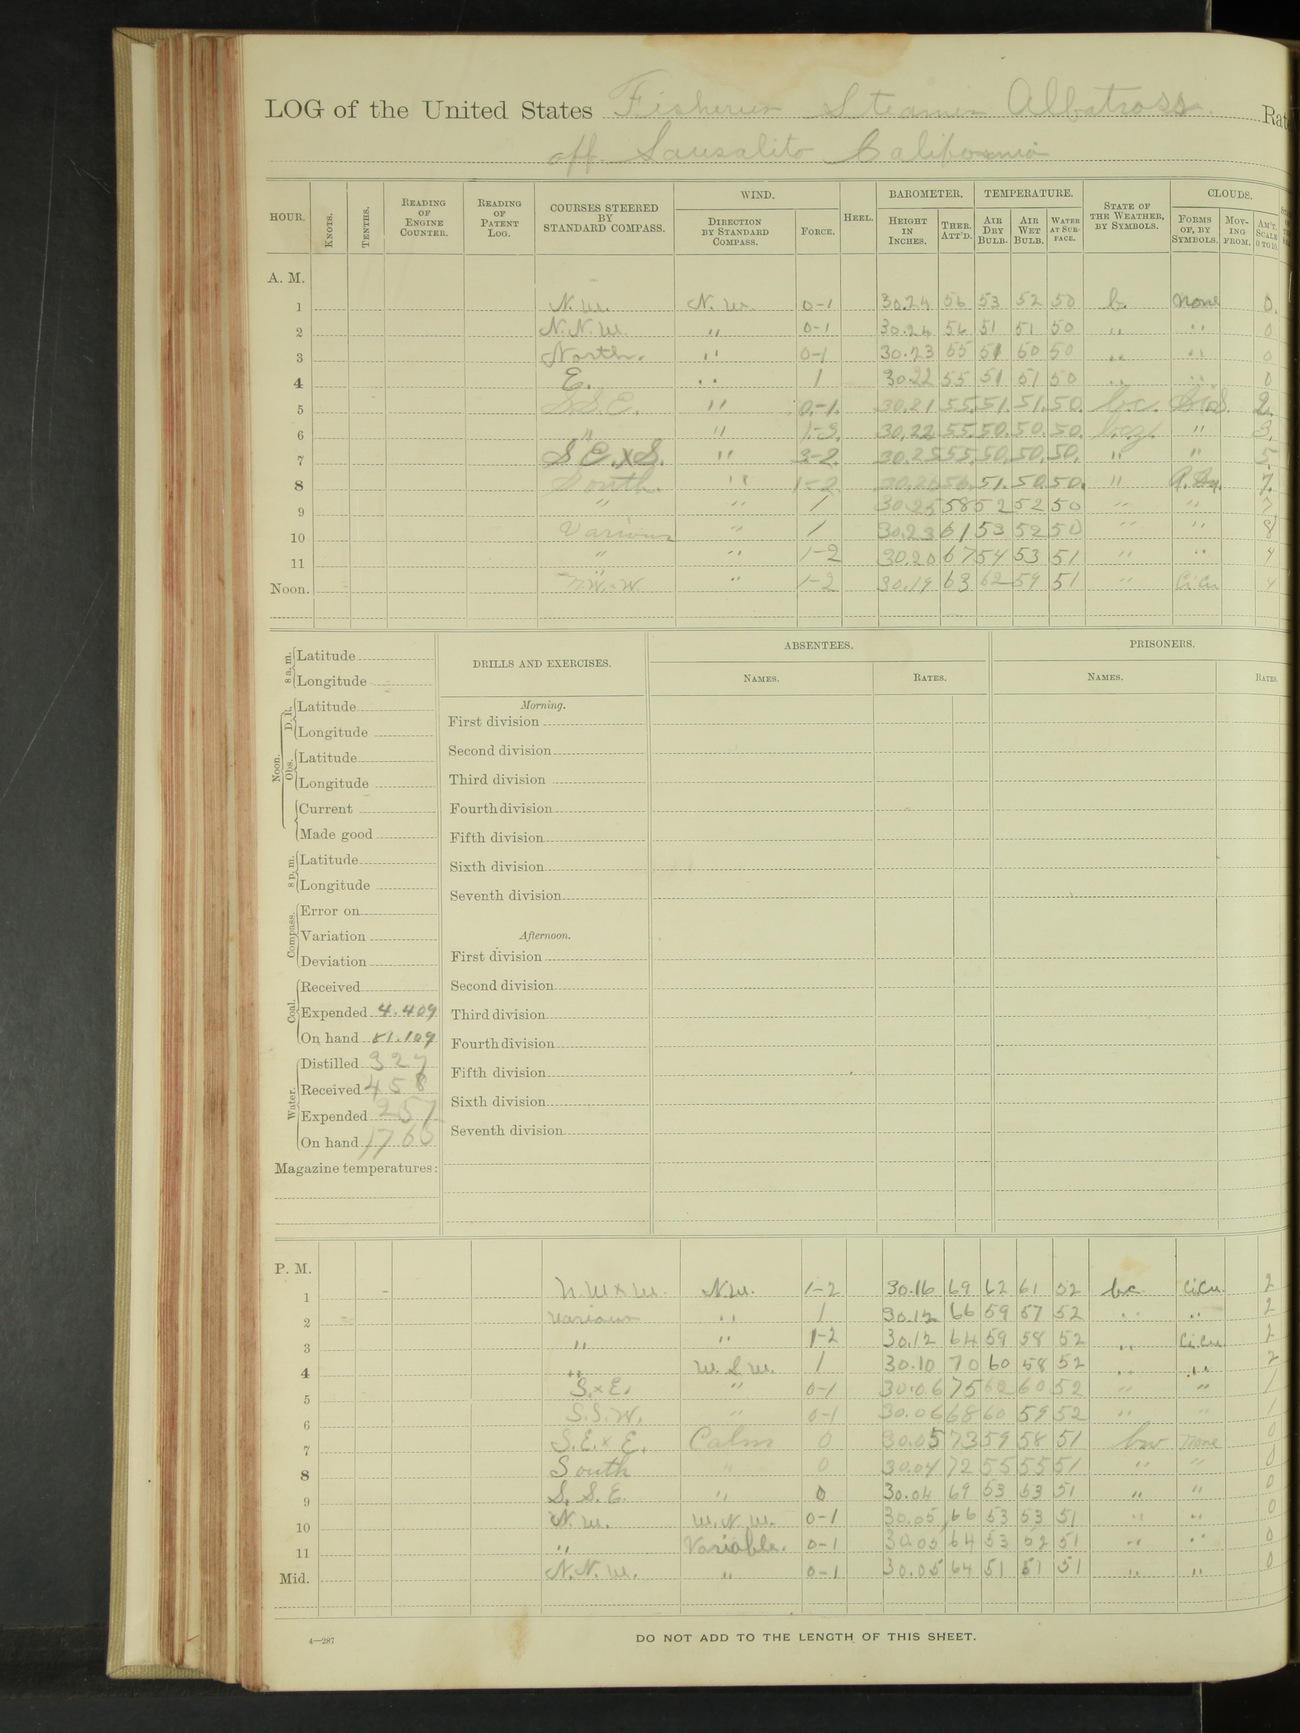 LOG of the United States Fisheries Steamer Albatross. Rat
off Sausalito California
HOUR. KNOTS. TENTHS. READING OF ENGINE COUNTER. READING OF PATENT LOG. COURSES STEERED BY STANDARD COMPASS. WIND. DIRECTION BY STANDARD COMPASS. FORCE. HEEL. BAROMETER. HEIGHT IN INCHES. THER. ATT'D. TEMPERATURE. AIR DRY BULB. AIR WET BULB. WATER AT SURFACE. STATE OF THE WEATHER, BY SYMBOLS. CLOUDS. FORMS OF, BY SYMBOLS. MOVING FROM. AM'T. SCALE 0 TO 10.
A. M.
1 N.W. N.W. 0-1 30.24 56 53 52 50 b. none 0.
2 N.N.W. " 0-1 30.24 56 51 51 50 " " 0
3 North. " 0-1 30.23 55 51 50 50 " " 0
4 E. " 1 30.22 55 51 51 50 " " 0
5 S.S.E. " 0-1. 30.21 55. 51. 51. 50. bc. 2.
6 " " 1-2. 30.22 55. 50. 50. 50. bcz. " 3.
7 S.E.xS. " 3-2. 30.25 55. 50. 50. 50. " " 5.
8 South. " 1-2. 30.26 56. 51. 50. 50. " 7.
9 " " 1 30.25 58 52 52 50 " " 7
10 Various " 1 30.23 61 53 52 50 " " 8
11 " " 1-2 30.20 67 54 53 51 " " 4
Noon. " 1-2 30.19 63 62 59 51 " Ci Cu 4
8 a. m. Latitude
Longitude
Noon. D. R. Latitude
Longitude
Obs. Latitude
Longitude
Current
Made good
8 p. m. Latitude
Longitude
Compass. Error on
Variation
Deviation
Coal. Received
Expended 4.409
On hand 81.109
Water. Distilled 327
Received 458
Expended 257
On hand 1765
Magazine temperatures:
DRILLS AND EXERCISES.
Morning.
First division
Second division
Third division
Fourth division
Fifth division
Sixth division
Seventh division
Afternoon.
First division
Second division
Third division
Fourth division
Fifth division
Sixth division
Seventh division
ABSENTEES.
NAMES. RATES.
PRISONERS.
NAMES. RATES.
P. M.
1 N.WxW. N.W. 1-2 30.16 69 62 61 52 bc CiCu. 2
2 Various " 1 30.12 66 59 57 52 " " 2
3 " " 1-2 30.12 64 59 58 52 " Ci.Cu 2
4 " W.S.W. 1 30.10 70 60 58 52 " " 2
5 S.xE. " 0-1 30.06 75 62 60 52 " " 1
6 S.S.W. " 0-1 30.06 68 60 59 52 " " 1
7 S.E.xE. Calm 0 30.05 73 59 58 51 bw none 0
8 South " 0 30.04 72 55 55 51 " " 0
9 S.S.E. " 0 30.04 69 53 53 51 " " 0
10 N.W. W.N.W. 0-1 30.05 66 53 53 51 " " 0
11 " Variable. 0-1 30.05 64 53 52 51 " " 0
Mid. N.N.W. " 0-1 30.05 64 51 51 51 " " 0
4—287
DO NOT ADD TO THE LENGTH OF THIS SHEET.